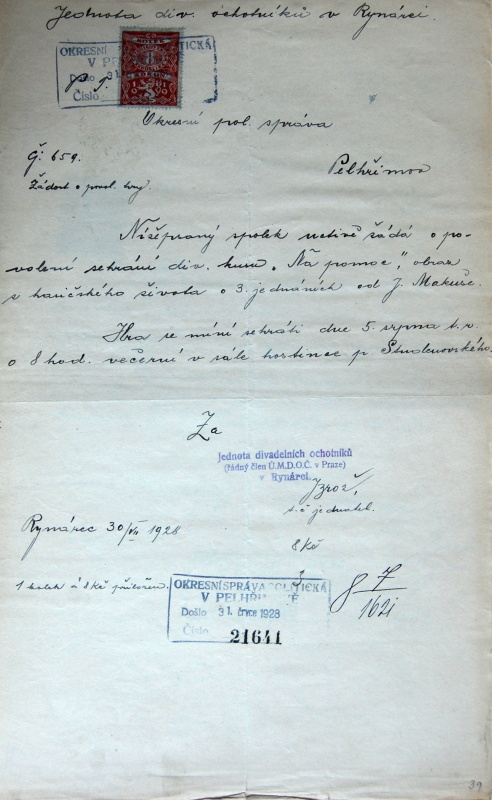 Jednota div. ochotníků v Rynárci.
OKRESNÍ POLITICKÁ
V PEL
Došlo 31
Číslo
8
KORUN
Okresní pol. správa
Č: 659.
Pelhřimov
Žádost o povol. hry.
Nížepsaný spolek uctivě žádá o po-
volení sehrání div. kusu „Na pomoc“, obraz
z hasičského života o 3. jednáních od J. Makuše.
Hra se míní sehráti dne 5. srpna t. r.
o 8 hod. večerní v sále hostince p. Studenovského.
Za
Jednota divadelních ochotníků
(řádný člen Ú.M.D.O.Č. v Praze)
v Rynárci.
Brož,
t. č. jednatel.
Rynárec 30/VII 1928
8 Kč
1 kolek á 8 Kč přiložen.
OKRESNÍ SPRÁVA POLITICKÁ
V PELHŘIMOVĚ
Došlo 31. čvce 1928
Číslo 21641
8 7
1621
39